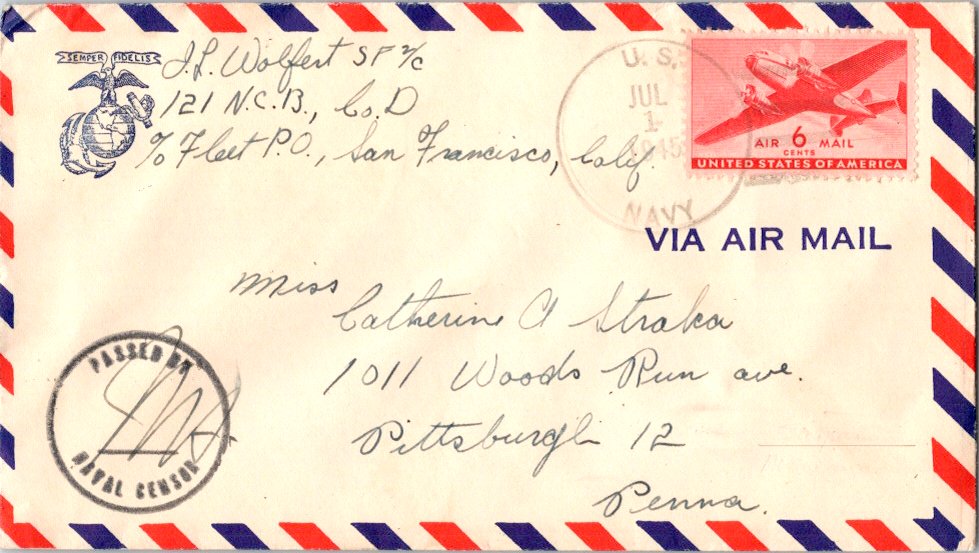 SEMPER FIDELIS
J.L. Wolfert SF 2/c
121 N.C.B., Co. D
c/o Fleet P.O., San Francisco, Calif.
U.S.
JUL
1
1945
NAVY
AIR 6 MAIL
CENTS
UNITED STATES OF AMERICA
VIA AIR MAIL
Miss
Catherine A Straka
1011 Woods Run ave.
Pittsburgh 12
Penna.
PASSED BY
NAVAL CENSOR